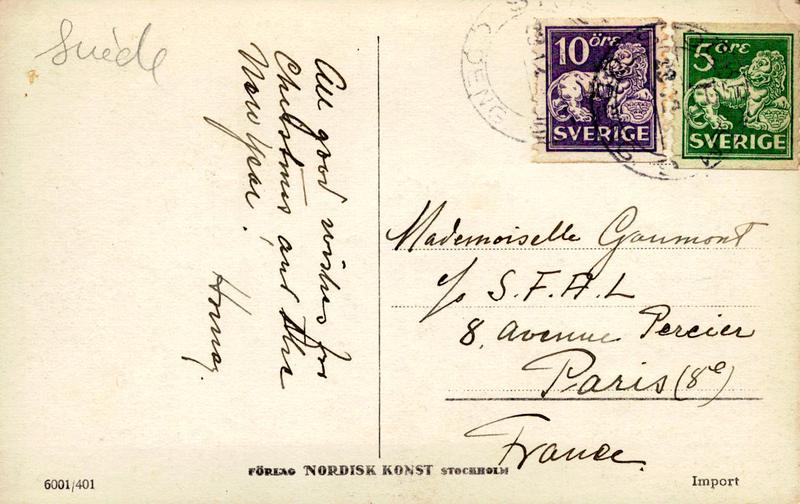 Suède
All good wishes for
Christmas and the
New Year!
10 öre
SVERIGE
5 öre
SVERIGE
Mademoiselle Gaumont
c/o S.F.A.L
8, avenue Percier
Paris (8e)
France.
6001/401
FÖRLAG NORDISK KONST STOCKHOLM
Import